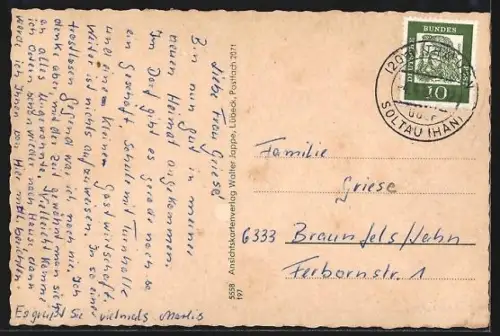 Liebe Frau Griese!
Bin nun gut in meiner
neuen Heimat angekommen.
Im Dorf gibt es gerade noch so
ein Geschäft, Schule mit Turnhalle
und eine kleine Gastwirtschaft.
Weiter ist nichts aufzuweisen. In so einer
trostlosen Gegend war ich noch nie. Ich
denke aber, mit der Zeit gewöhnt man sich
an alles Ungewohnte. Vielleicht komme
ich Ostern wieder nach Hause, dann
werde ich Ihnen von hier mehr berichten.
Es grüßt Sie vielmals Marlis
5558 Ansichtskartenverlag Walter Jappe, Lübeck, Postfach 2071
197
DEUTSCHE
BUNDESPOST
10
SOLTAU (HAN)
Familie
Griese
6333 Braunfels/Lahn
Ferbornstr. 1